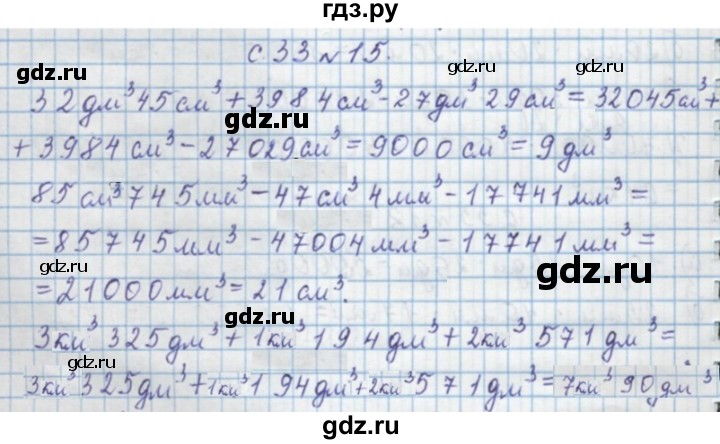 гдз.ру
с 33 №15.
gdz.ru
gdz.ru
32 дм³ 45 см³ + 3984 см³ - 27 дм³ 29 см³ = 32045 см³ +
gdz.ru
+ 3984 см³ - 27029 см³ = 9000 см³ = 9 дм³
85 см³ 745 мм³ - 47 см³ 4 мм³ - 17741 мм³ =
= 85745 мм³ - 47004 мм³ - 17741 мм³ =
gdz.ru
gdz.ru
= 21000 мм³ = 21 см³.
gdz.ru
3 ки³ 325 дм³ + 1 ки³ 194 дм³ + 2 ки³ 571 дм³ =
gdz.ru
3 ки³ 325 дм³ + 1 ки³ 194 дм³ + 2 ки³ 571 дм³ = 7 ки³ 90 дм³
gdz.ru
gdz.ru